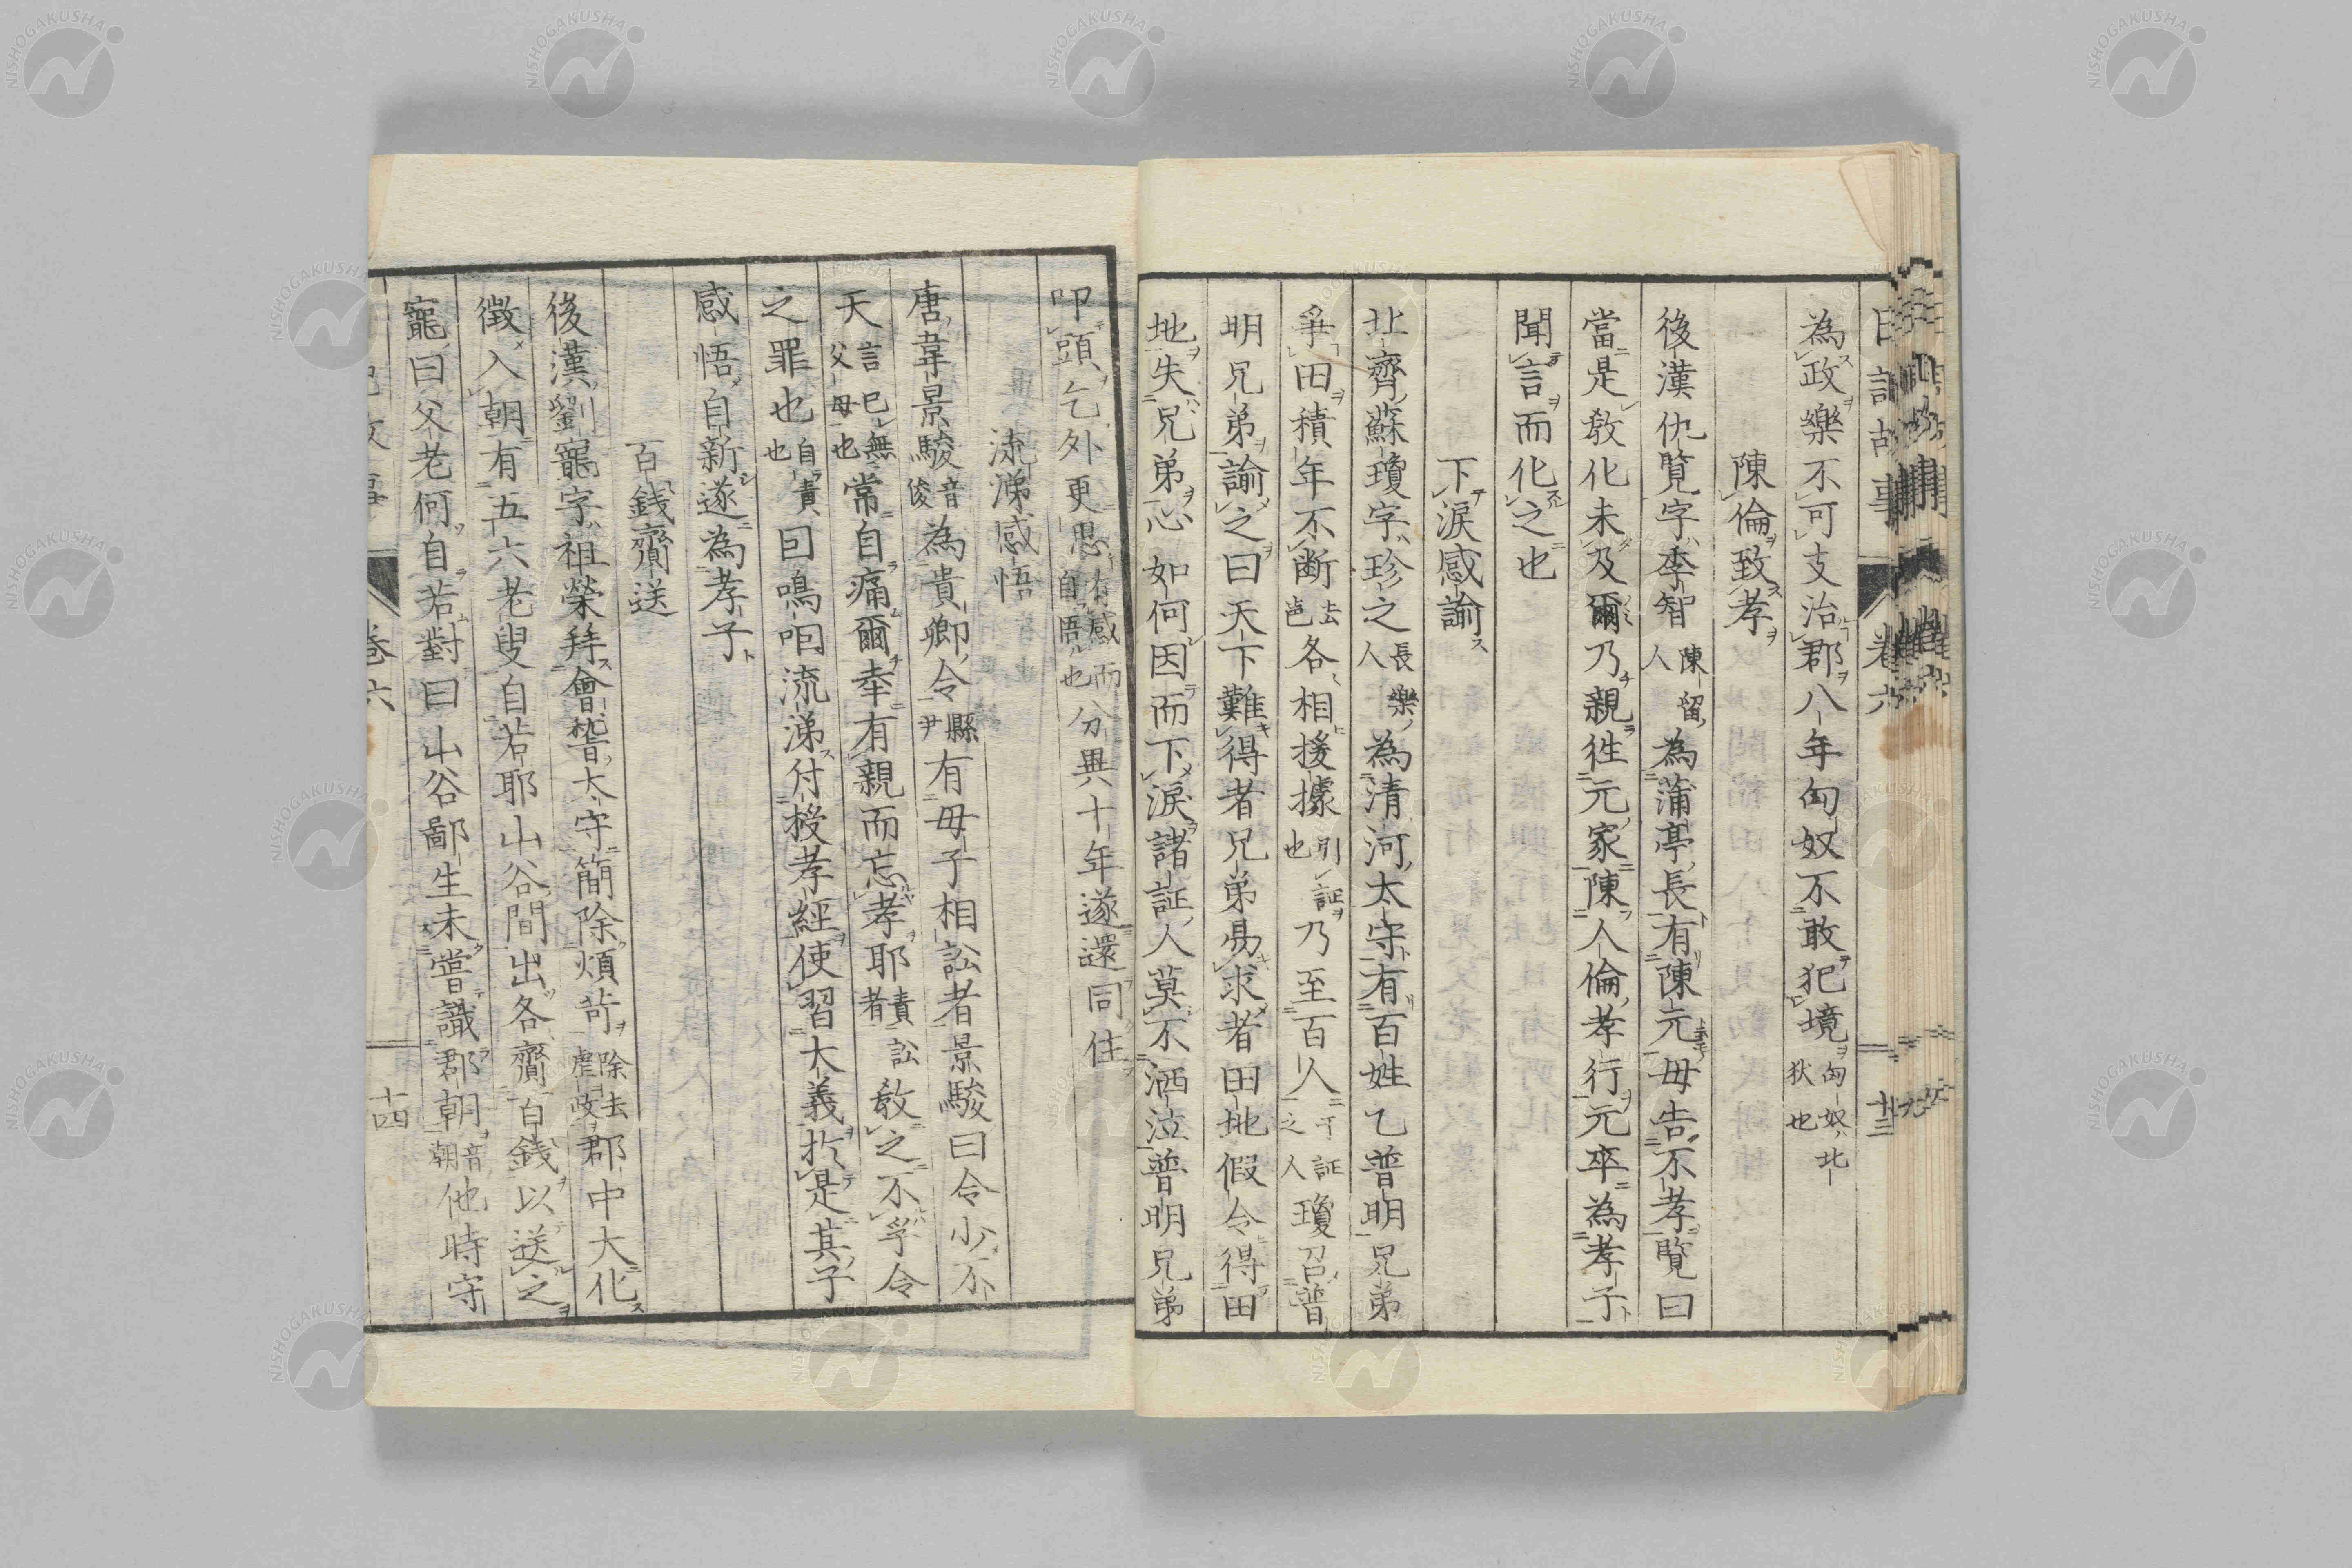 為政樂不可支治郡八年匈奴不敢犯境匈奴北狄也
陳倫致孝
後漢仇覽字季智陳留人為蒲亭長有陳元母告不孝覽曰
當是教化未及爾乃親往元家陳人倫孝行元卒為孝子
聞言而化之也
下淚感諭
北齊蘇瓊字珍之長樂人為清河太守有百姓乙普明兄弟
爭田積年不斷去邑各相援據引証也乃至百人于証之人瓊召普
明兄弟諭之曰天下難得者兄弟易求者田地假令得田
地失兄弟心如何因而下淚諸証人莫不洒泣普明兄弟
叩頭乞外更思有感而自悟也分異十年遂還同住
流涕感悟
唐韋景駿音俊為貴鄉令縣尹有母子相訟者景駿曰令少不
天言已無父母也常自痛爾幸有親而忘孝耶責訟者教之不孚令
之罪也自責也因嗚咽流涕付授孝經使習大義於是其子
感悟自新遂為孝子
百錢齎送
後漢劉寵字祖榮拜會稽太守簡除煩苛除去虐政郡中大化
徵入朝有五六老叟自若耶山谷間出各齎百錢以送之
寵曰父老何自若對曰山谷鄙生未嘗識郡朝音朝他時守
卷六
十四
日記故事
卷六
十三
NISHOGAKUSHA